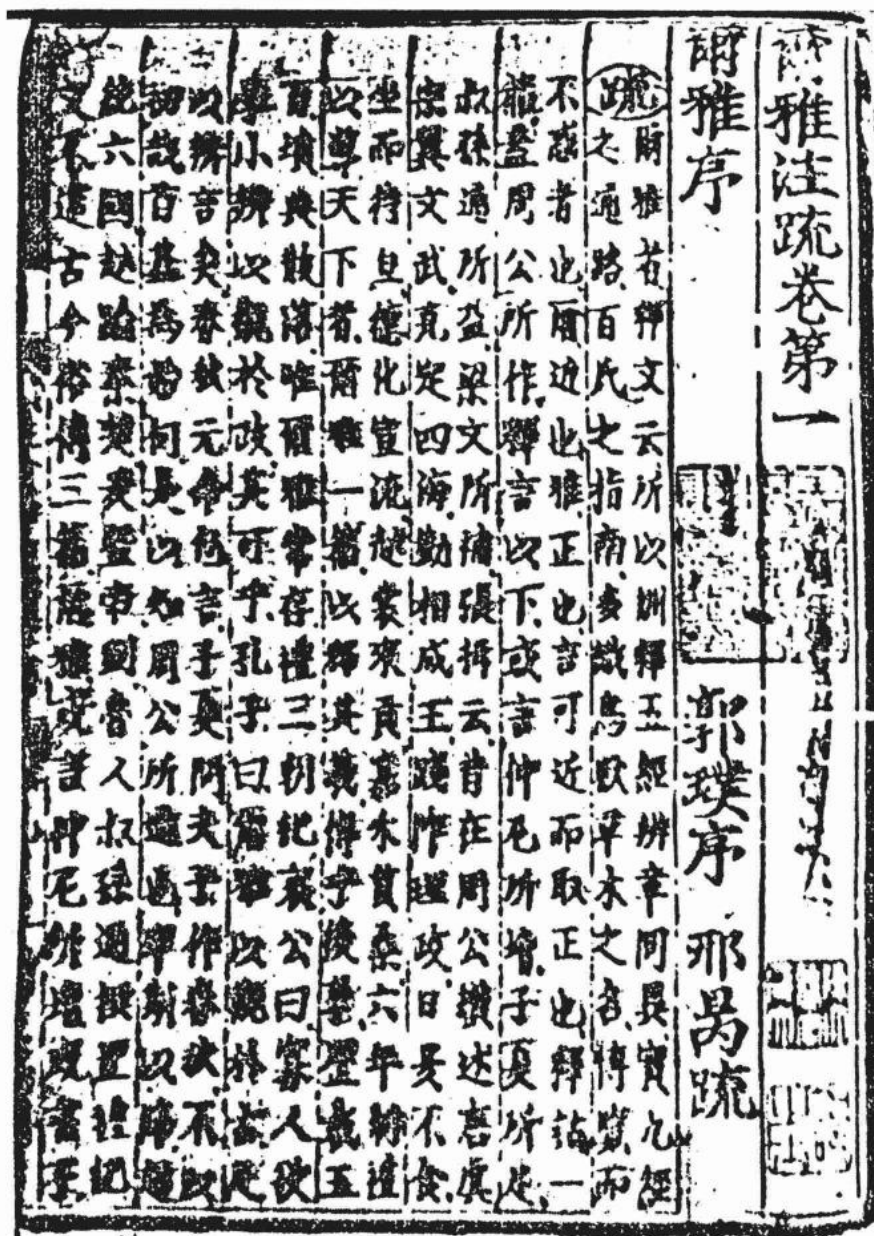 爾雅注疏卷第一
爾雅序 郭璞序 邢昺疏
疏 爾雅者釋文云所以訓釋五經辨章同異實九經
之通路百氏之指南多識鳥獸草木之名博覽而
不惑者也爾近也雅正也言可近而取正也釋詁一
篇蓋周公所作釋言以下或言仲尼所增子夏所足
叔孫通所益梁文所補張揖云昔在周公纘述唐虞
宗翼文武克定四海勤相成王踐阼理政日昃不食
坐而待旦德化宣流越裳倈貢嘉禾貫桑六年制禮
以導天下著爾雅一篇以釋其義傳乎後 歷載五
百墳典散落唯爾雅常存禮三朝記哀公曰寡人欲
學小辨以觀於政其可乎孔子曰爾雅以觀於古足
以辨言矣春秋元命包言子夏問夫子作春秋不以
初哉首基為始何是以知周公所造也率斯以降超
絕六國越踰秦楚爰暨帝劉魯人叔孫通撰置禮記
文不違古今俗傳三篇爾雅或言仲尼所增或言子